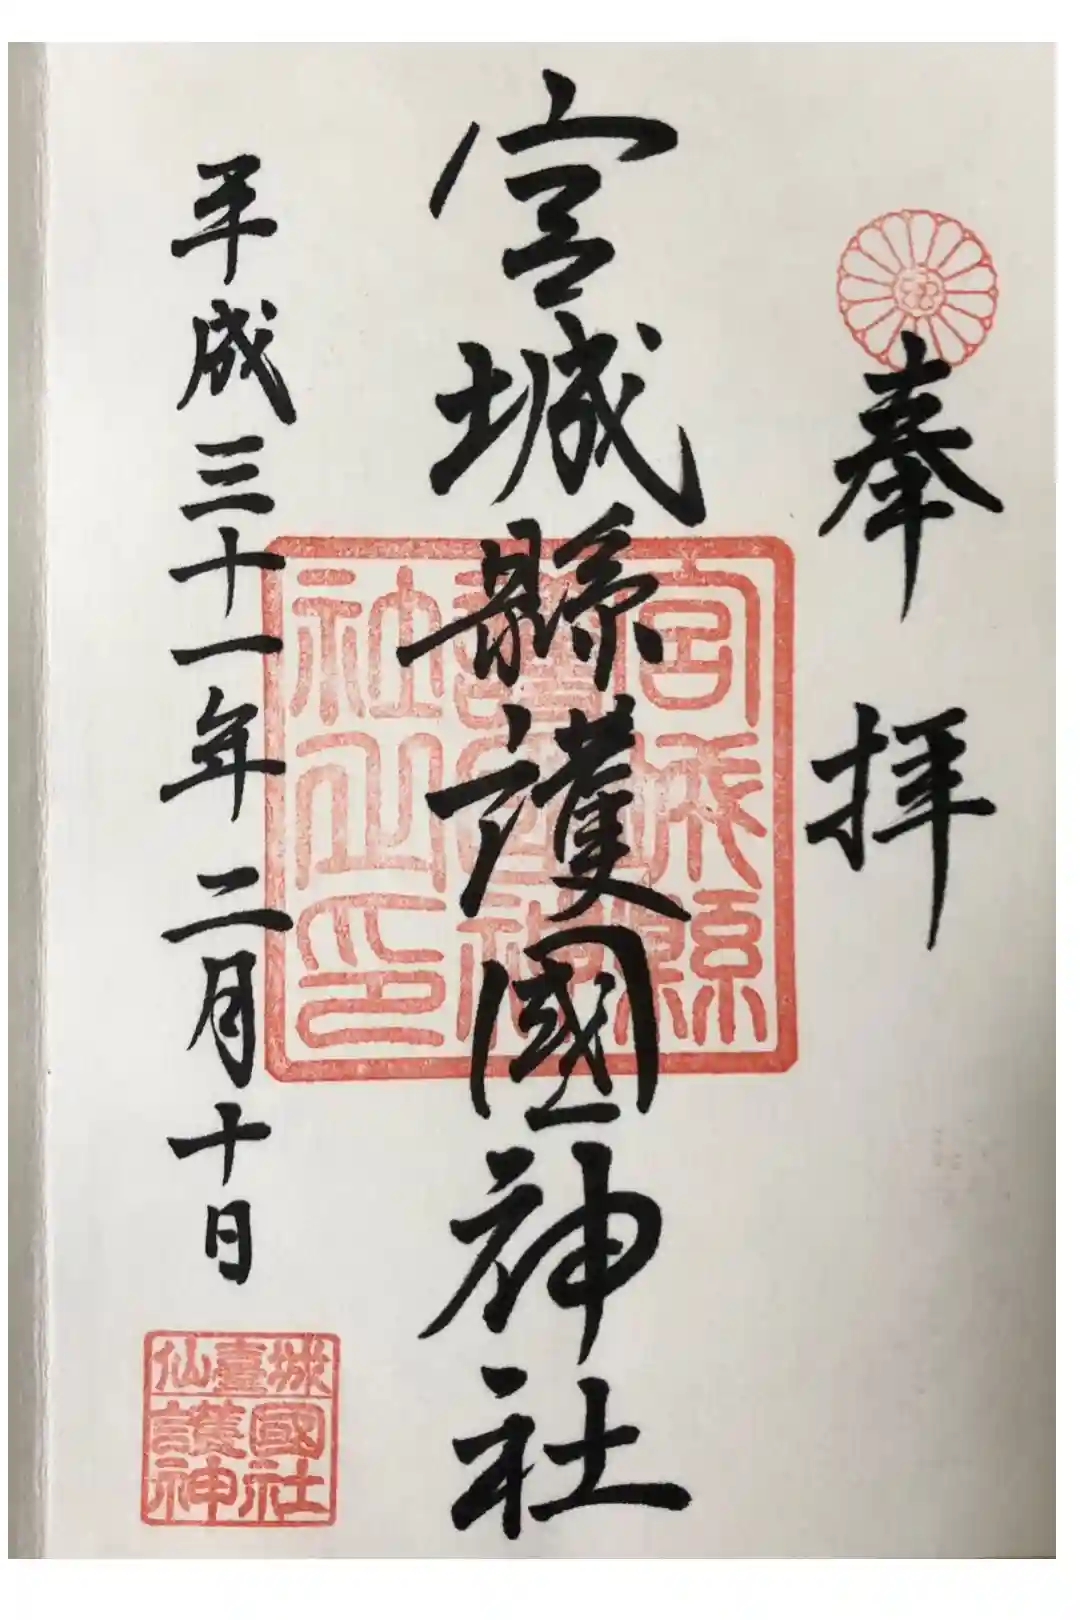 奉拝
宮城縣護國神社
宮城縣
護國神
社之印
平成三十一年二月十日
仙臺城
護國
神社